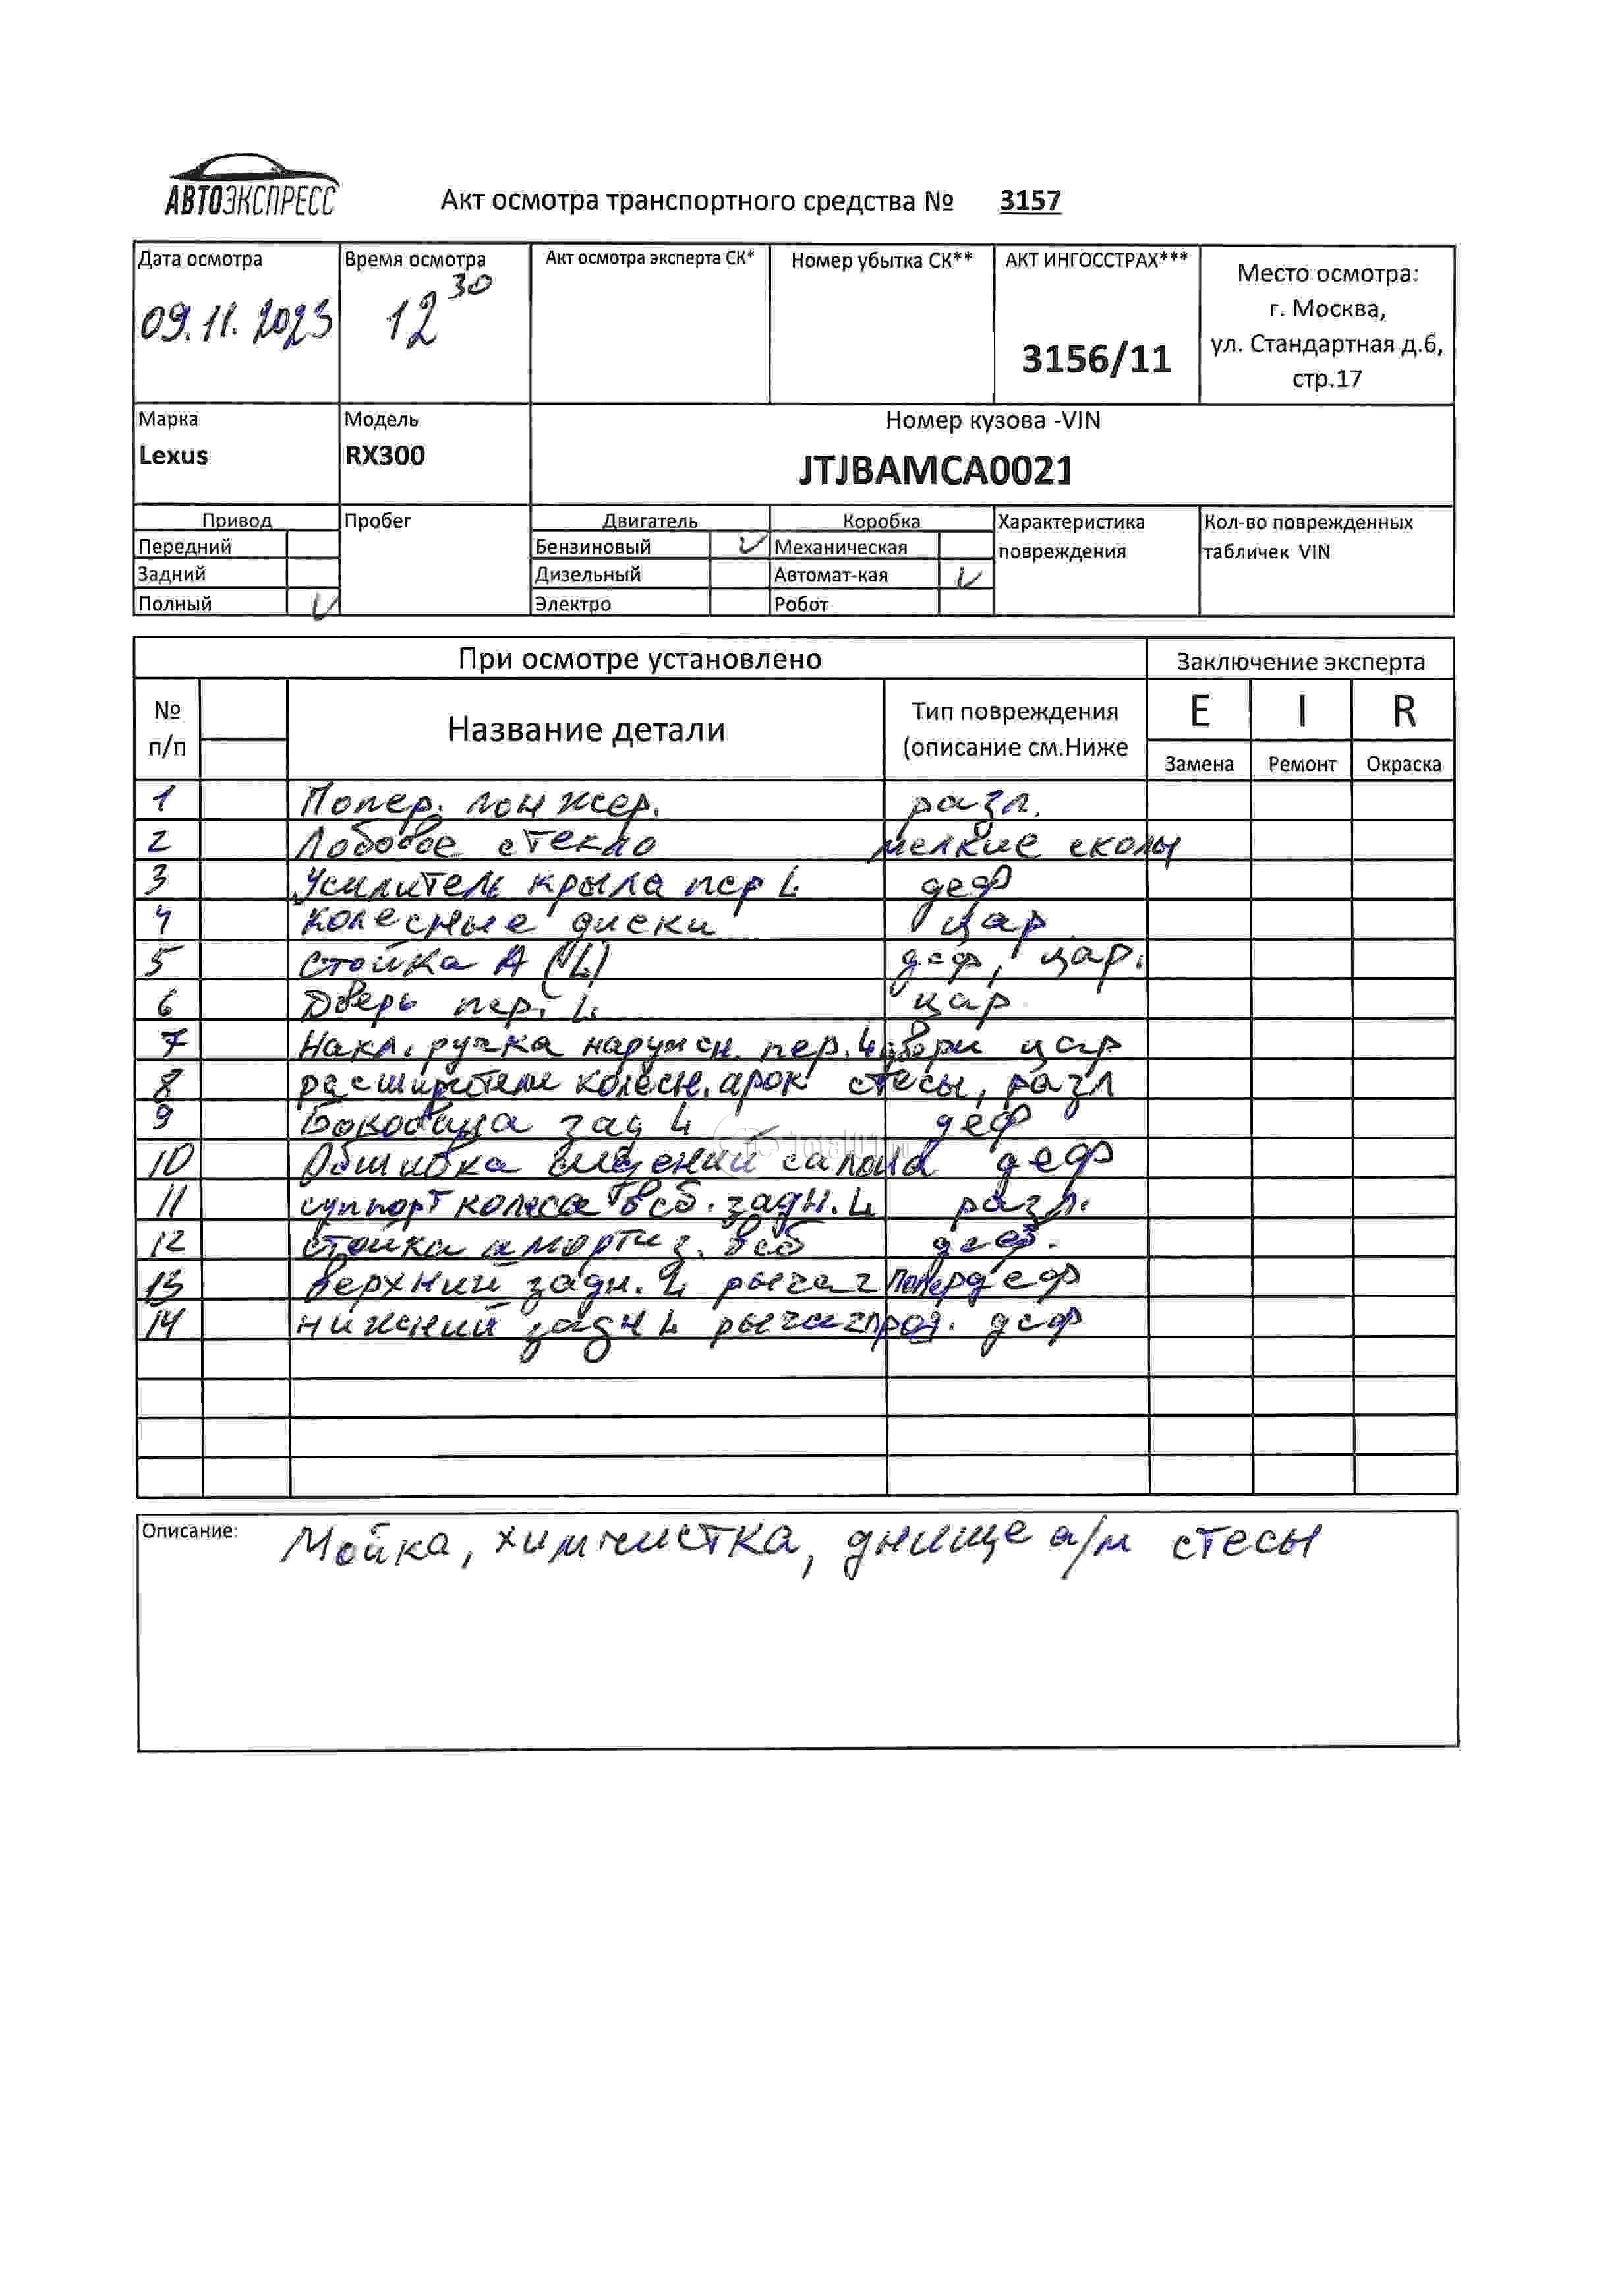 АВТОЭКСПРЕСС
Акт осмотра транспортного средства № 3157
Дата осмотра Время осмотра Акт осмотра эксперта СК* Номер убытка СК** АКТ ИНГОССТРАХ*** Место осмотра:
г. Москва,
ул. Стандартная д.6,
стр.17
09.11.2023 12 30 3156/11
Марка Модель Номер кузова -VIN
Lexus RX300 JTJBAMCA0021
Привод Пробег Двигатель Коробка Характеристика повреждения Кол-во поврежденных табличек VIN
Передний Бензиновый V Механическая
Задний Дизельный Автомат-кая V
Полный V Электро Робот
При осмотре установлено Заключение эксперта
№ п/п Название детали Тип повреждения (описание см.Ниже E I R
Замена Ремонт Окраска
1 Попер. лонжер. разл.
2 Лобовое стекло мелкие сколы
3 Усилитель крыла пер L деф
4 колесные диски цар
5 стойка А (L) деф, цар.
6 Дверь пер. L цар
7 Накл. ручка наружн. пер. L двери цар
8 расширители колесн. арок стесы, разл
9 Боковина зад L деф
10 Обшивка сидений салона деф
11 суппорт колеса в сб. задн. L разл.
12 стойка амортиз. в сб деф.
13 верхний задн. L рычаг попер деф
14 нижний задн L рычаг прод. деф
Описание: Мойка, химчистка, днище а/м стесы